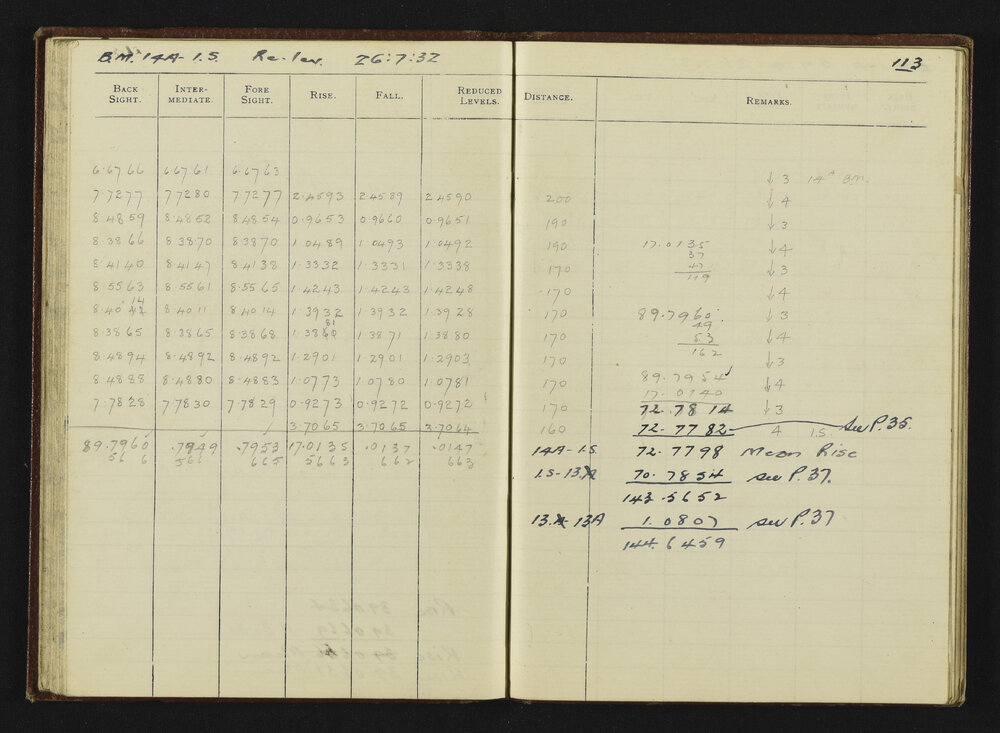 B.M. 14A-1.S. Re-lev. 26:7:32 113
BACK SIGHT. INTER-MEDIATE. FORE SIGHT. RISE. FALL. REDUCED LEVELS. DISTANCE. REMARKS.
6.6766 6.6761 6.6763 ↓3 14A B.M.
7.7277 7.7280 7.7277 2.4593 2.4589 2.4590 200 ↓4
8.4859 8.4852 8.4854 0.9653 0.9660 0.9651 190 ↓3
8.3866 8.3870 8.3870 1.0489 1.0493 1.0492 190 17.0135 ↓4
37
8.4140 8.4147 8.4138 1.3332 1.3331 1.3338 170 47 ↓3
119
8.5563 8.5561 8.5565 1.4243 1.4243 1.4248 170 ↓4
14
8.4012 8.4011 8.4014 1.3932 1.3932 1.3928 170 89.7960 ↓3
81 49
8.3865 8.3865 8.3868 1.3860 1.3871 1.3880 170 53 ↓4
162
8.4894 8.4892 8.4892 1.2901 1.2901 1.2903 170 ↓3
8.4888 8.4880 8.4883 1.0773 1.0780 1.0781 170 89.7954 ↓4
17.0140
7.7828 7.7830 7.7829 0.9273 0.9272 0.9272 170 72.7814 ↓3
3.7065 3.7065 3.7064 160 72.7782 4 1.S. see P.35.
89.7960 .7949 .7953 17.0135 .0137 .0147 14A-1.S. 72.7798 Mean Rise
56 6 561 665 5663 662 663
1.S-13A 70.7854 see P.37.
143.5652
13.A-13A 1.0807 see P.37
144.6459